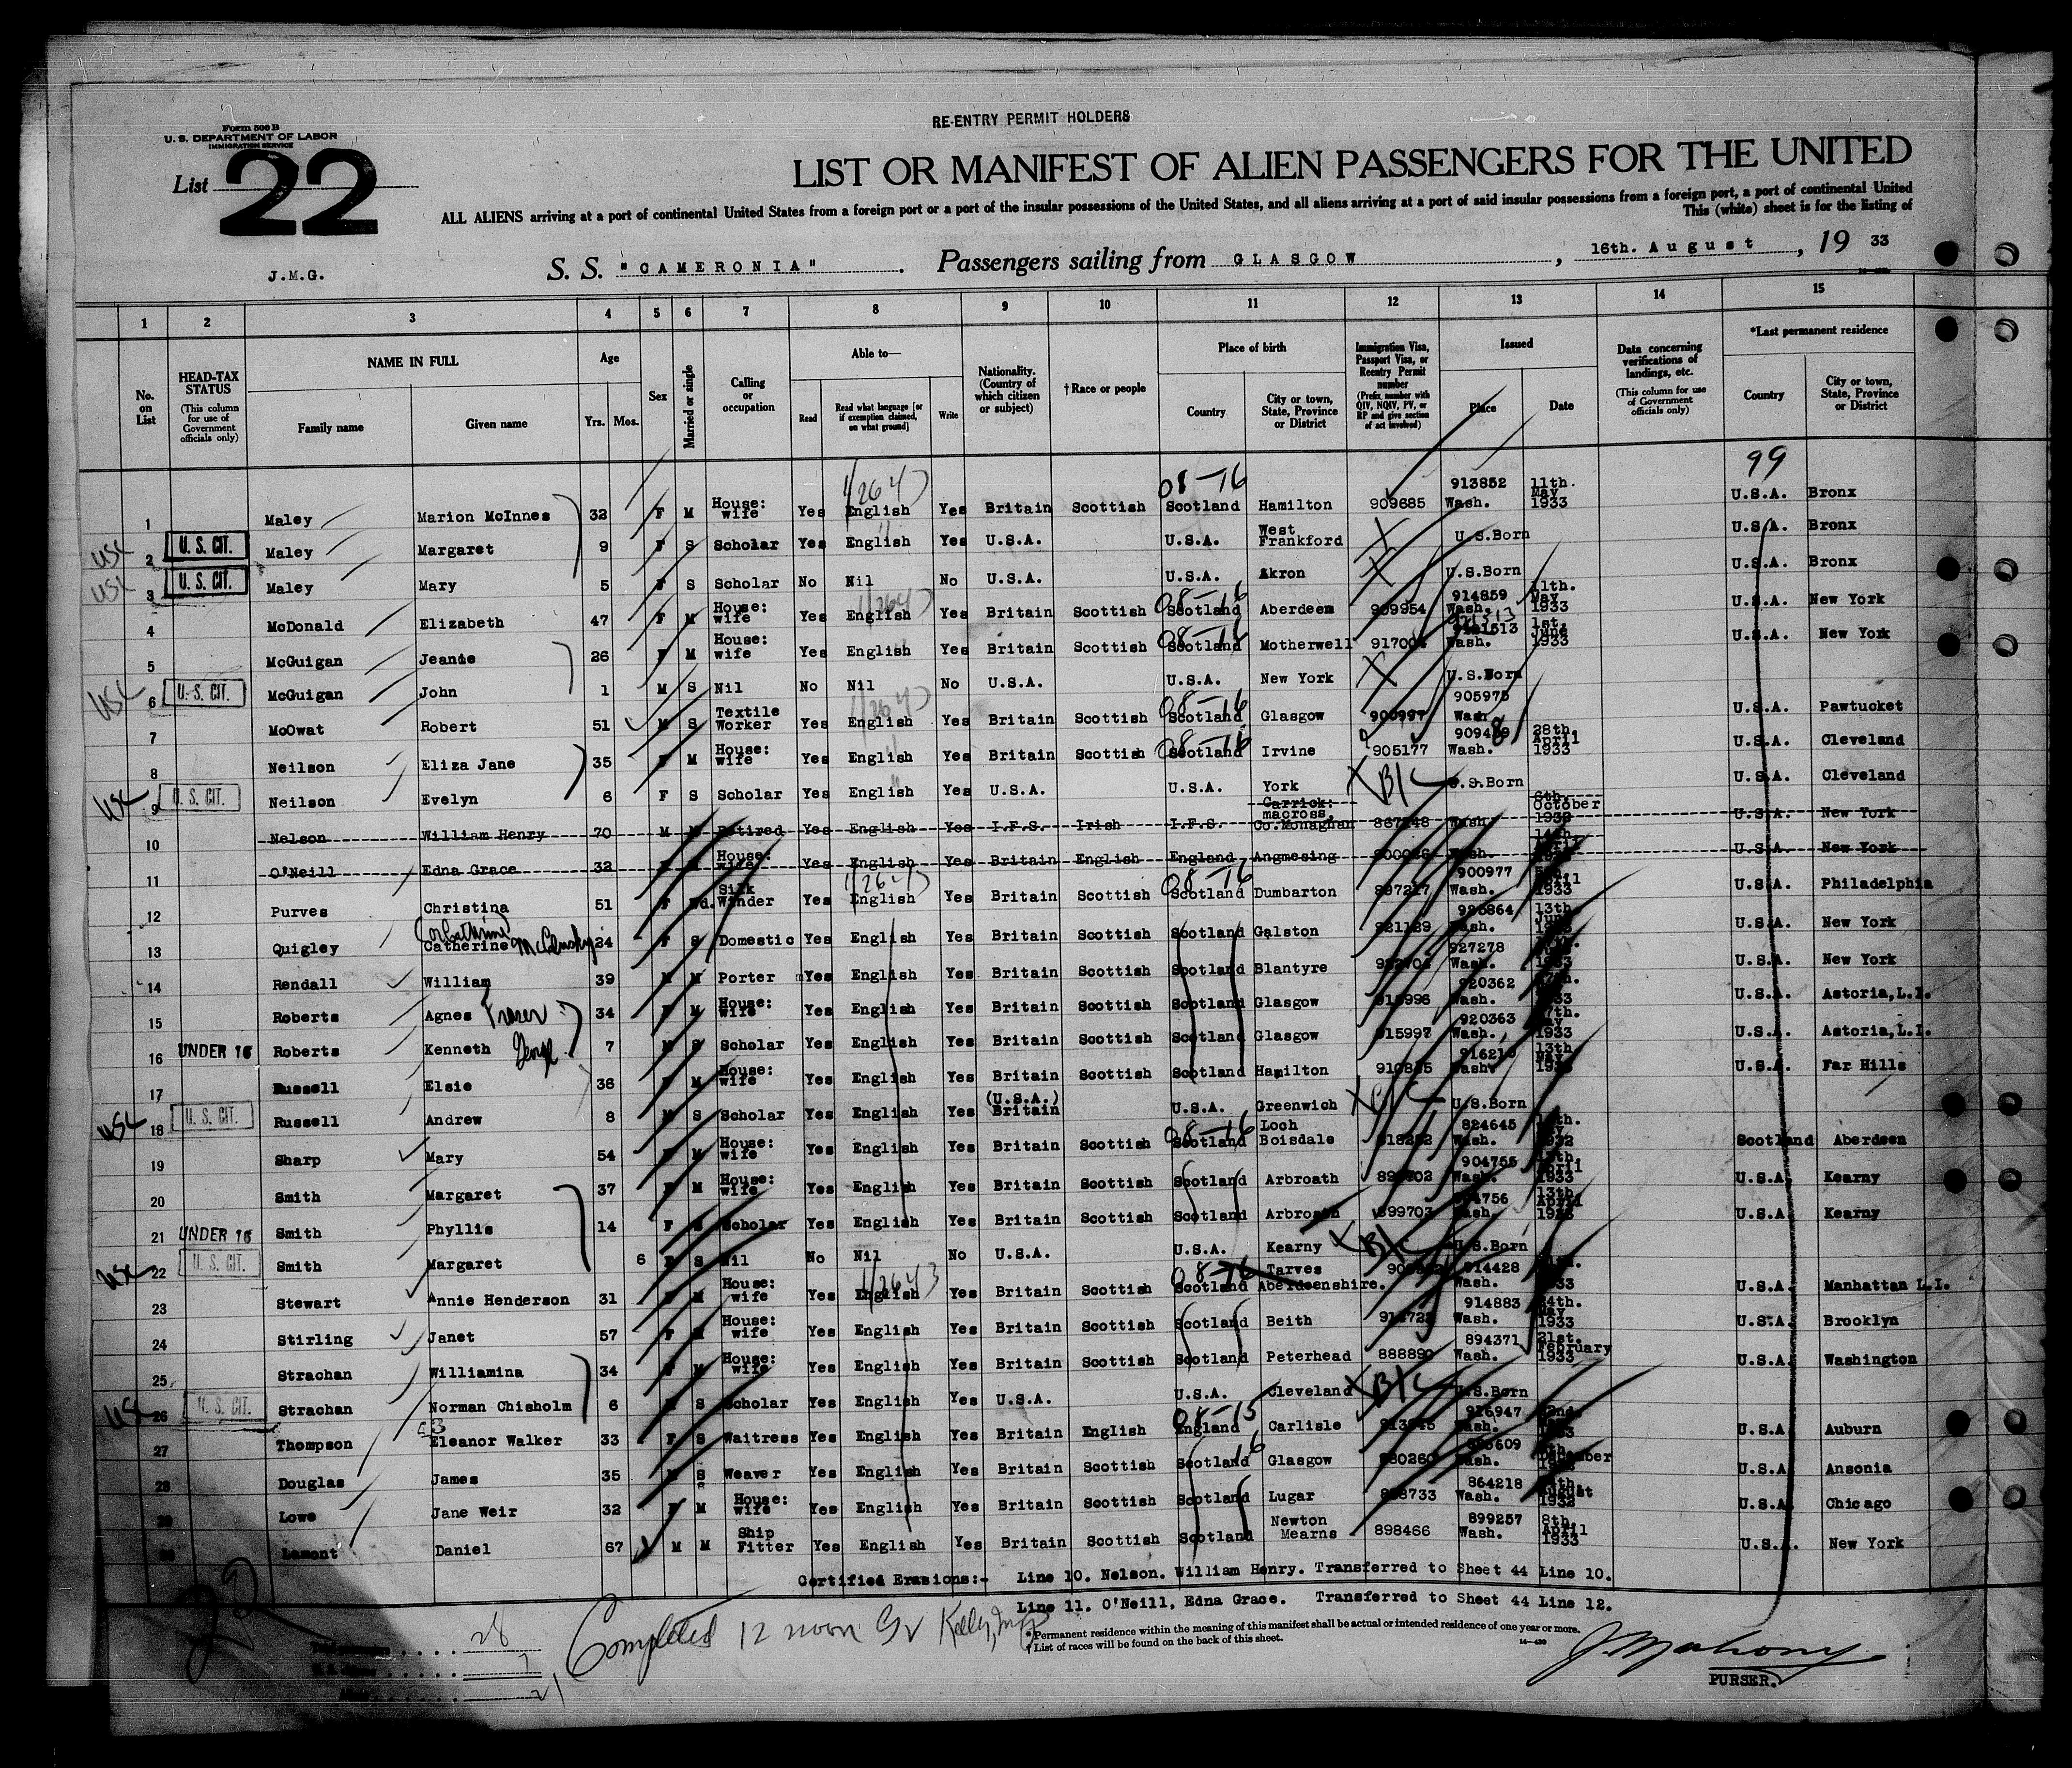 RE-ENTRY PERMIT HOLDERS
Form 500 B
U. S. DEPARTMENT OF LABOR
IMMIGRATION SERVICE
List 22
LIST OR MANIFEST OF ALIEN PASSENGERS FOR THE UNITED
ALL ALIENS arriving at a port of continental United States from a foreign port or a port of the insular possessions of the United States, and all aliens arriving at a port of said insular possessions from a foreign port, a port of continental United
This (white) sheet is for the listing of
J.M.G. S. S. "CAMERONIA" . Passengers sailing from GLASGOW , 16th. August , 19 33
1 2 3 4 5 6 7 8 9 10 11 12 13 14 15
No. on List
HEAD-TAX STATUS (This column for use of Government officials only)
NAME IN FULL Family name Given name
Age Yrs. Mos.
Sex
Married or single
Calling or occupation
Able to— Read Read what language [or if exemption claimed, on what ground] Write
Nationality. (Country of which citizen or subject)
†Race or people
Place of birth Country City or town, State, Province or District
Immigration Visa, Passport Visa, or Reentry Permit number (Prefix number with QIV, NQIV, PV, or RP and give section of act involved)
Issued Place Date
Data concerning verifications of landings, etc. (This column for use of Government officials only)
*Last permanent residence Country City or town, State, Province or District
99
1 Maley Marion McInnes 32 F M House: wife Yes English Yes Britain Scottish Scotland Hamilton 909685 913852 Wash. 11th. May 1933 U.S.A. Bronx
USC 2 U. S. CIT. Maley Margaret 9 F S Scholar Yes English Yes U.S.A. U.S.A. West Frankford U.S.Born U.S.A. Bronx
USC 3 U. S. CIT. Maley Mary 5 F S Scholar No Nil No U.S.A. U.S.A. Akron U.S.Born U.S.A. Bronx
4 McDonald Elizabeth 47 F M House: wife Yes English Yes Britain Scottish Scotland Aberdeen 909954 914859 Wash. 11th. May 1933 U.S.A. New York
5 McGuigan Jeanie 26 F M House: wife Yes English Yes Britain Scottish Scotland Motherwell Wash. 1st. June 1933 U.S.A. New York
USC 6 U. S. CIT. McGuigan John 1 M S Nil No Nil No U.S.A. U.S.A. New York U.S.Born
7 McOwat Robert 51 M S Textile Worker Yes English Yes Britain Scottish Scotland Glasgow 900997 905975 Wash U.S.A. Pawtucket
8 Neilson Eliza Jane 35 F M House: wife Yes English Yes Britain Scottish Scotland Irvine 905177 Wash. 28th. April 1933 U.S.A. Cleveland
USC 9 U. S. CIT. Neilson Evelyn 6 F S Scholar Yes English Yes U.S.A. U.S.A. York B/C U.S.Born U.S.A. Cleveland
10 Nelson William Henry 70 M M Retired Yes English Yes I.F.S. Irish I.F.S. Carrick: macross, Co.Monaghan Wash. 6th. October 1932 U.S.A. New York
11 O'Neill Edna Grace 32 F M House: wife Yes English Yes Britain English England Angmesing Wash. U.S.A. New York
12 Purves Christina 51 F Wd. Silk Winder Yes English Yes Britain Scottish Scotland Dumbarton 897217 900977 Wash. April 1933 U.S.A. Philadelphia
13 Quigley Catherine 24 F S Domestic Yes English Yes Britain Scottish Scotland Galston Wash. 13th. June U.S.A. New York
14 Rendall William 39 M M Porter Yes English Yes Britain Scottish Scotland Blantyre 927278 Wash. U.S.A. New York
15 Roberts Agnes Fraser 34 F M House: wife Yes English Yes Britain Scottish Scotland Glasgow 920362 Wash. U.S.A. Astoria,L.I.
16 UNDER 16 Roberts Kenneth George 7 M S Scholar Yes English Yes Britain Scottish Scotland Glasgow 915997 920363 Wash. 1933 U.S.A. Astoria,L.I.
17 Russell Elsie 36 F M House: wife Yes English Yes Britain Scottish Scotland Hamilton Wash. 13th. U.S.A. Far Hills
USC 18 U. S. CIT. Russell Andrew 8 M S Scholar Yes English Yes (U.S.A.) Britain U.S.A. Greenwich B/C U.S.Born
19 Sharp Mary 54 F M House: wife Yes English Yes Britain Scottish Scotland Loch Boisdale 824645 Wash. 1932 Scotland Aberdeen
20 Smith Margaret 37 F M House: wife Yes English Yes Britain Scottish Scotland Arbroath 904755 Wash. April 1933 U.S.A. Kearny
21 UNDER 16 Smith Phyllis 14 F S Scholar Yes English Yes Britain Scottish Scotland Arbroath 899703 Wash. 13th. April U.S.A. Kearny
USC 22 U. S. CIT. Smith Margaret 6 F S Nil No Nil No U.S.A. U.S.A. Kearny B/C U.S.Born
23 Stewart Annie Henderson 31 F M House: wife Yes English Yes Britain Scottish Scotland Tarves Aberdeenshire. 914428 Wash. U.S.A. Manhattan L.I.
24 Stirling Janet 57 F M House: wife Yes English Yes Britain Scottish Scotland Beith 914883 Wash. 1933 U.S.A. Brooklyn
25 Strachan Williamina 34 F M House: wife Yes English Yes Britain Scottish Scotland Peterhead 888890 894371 Wash. 21st. February 1933 U.S.A. Washington
USC 26 U. S. CIT. Strachan Norman Chisholm 6 M S Scholar Yes English Yes U.S.A. U.S.A. Cleveland B/C U.S.Born
27 Thompson Eleanor Walker 33 F S Waitress Yes English Yes Britain English England Carlisle Wash. U.S.A. Auburn
28 Douglas James 35 M S Weaver Yes English Yes Britain Scottish Scotland Glasgow Wash. U.S.A. Ansonia
29 Lowe Jane Weir 32 F M House: wife Yes English Yes Britain Scottish Scotland Lugar 864218 Wash. August 1932 U.S.A. Chicago
30 Lamont Daniel 67 M M Ship Fitter Yes English Yes Britain Scottish Scotland Newton Mearns 898466 899257 Wash. 8th. April 1933 U.S.A. New York
Certified Erasions:- Line 10. Nelson. William Henry. Transferred to Sheet 44 Line 10.
Line 11. O'Neill, Edna Grace. Transferred to Sheet 44 Line 12.
Completed 12 noon
28
7
21
*Permanent residence within the meaning of this manifest shall be actual or intended residence of one year or more.
†List of races will be found on the back of this sheet.
J. Mahony
PURSER.